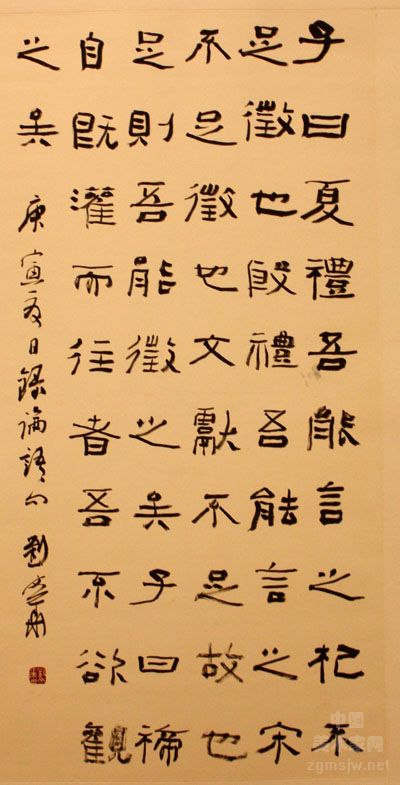 子曰夏禮吾能言之杞不
足徵也殷禮吾能言之宋
不足徵也文獻不足故也
足則吾能徵之矣子曰禘
自既灌而往者吾不欲觀
之矣 庚寅夏日錄論語句 劉
中国
美术家网
zgmsjw.net